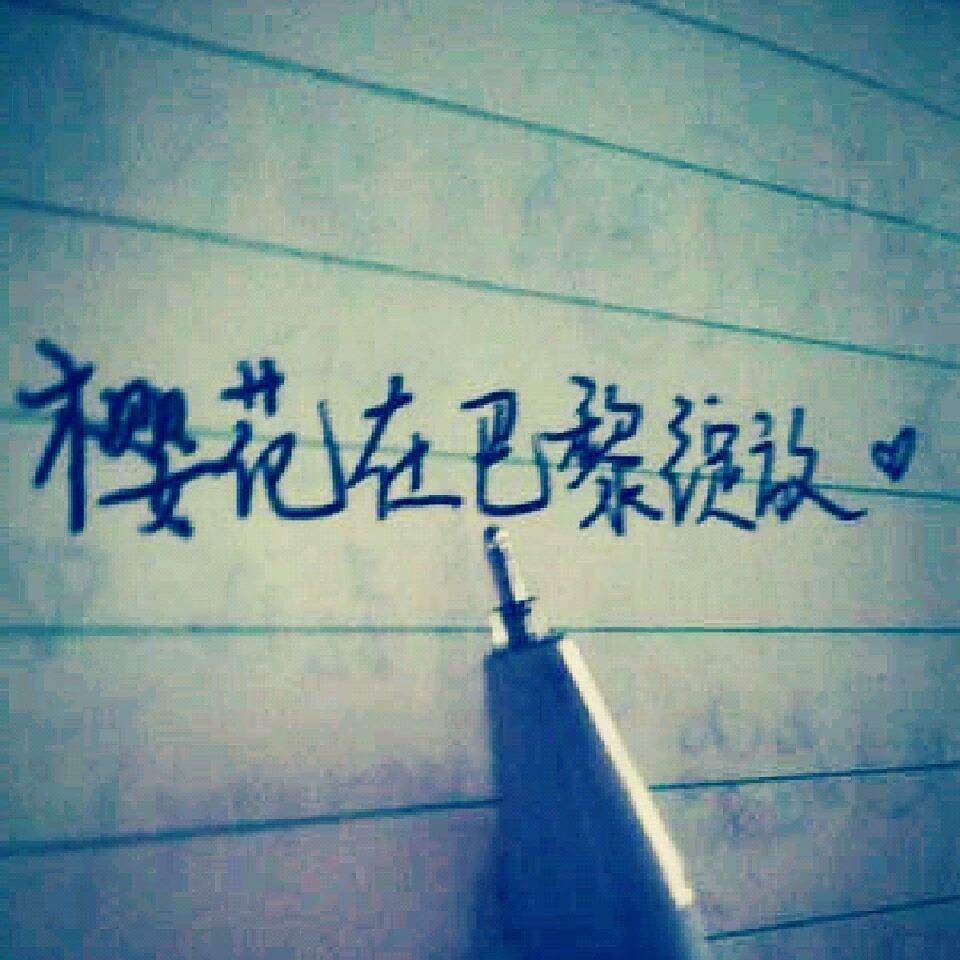 樱花在巴黎绽放♥